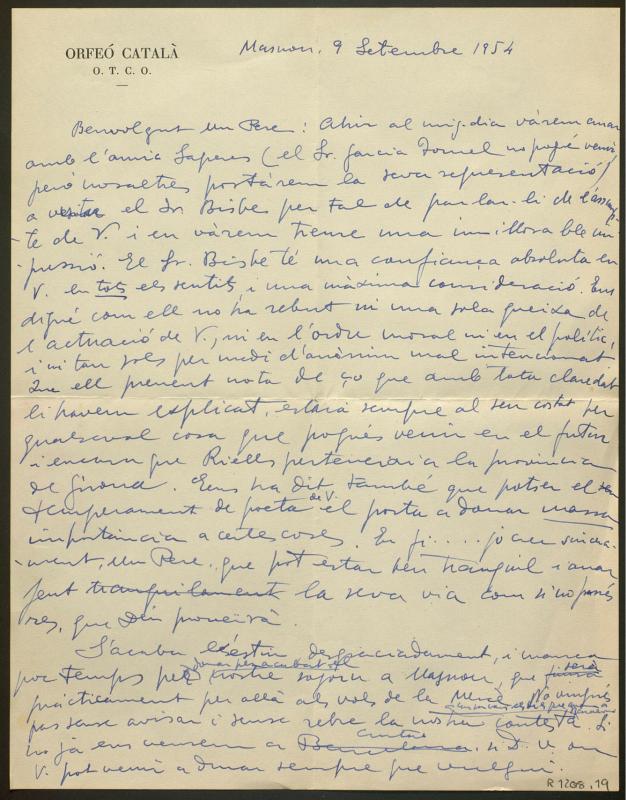 ORFEÓ CATALÀ
O. T. C. O.
Masnou, 9 Setembre 1954
Benvolgut Mn Pere: Ahir al mig-dia vàrem anar
amb l'amic Saperas (el Sr. Garcia no pogué venir
però nosaltres portàrem la seva representació)
a visitar el Sr. Bisbe per tal de parlar-li de l'assump-
te de V. i en vàrem treure una immillorable im-
pressió. El Sr. Bisbe té una confiança absoluta en
V. en tots els sentits i una màxima consideració. Ens
digué com ell no ha rebut ni una sola queixa de
l'actuació de V., ni en l'ordre moral ni en el polític,
i ni tan sols per medi d'anònim mal intencionat
Que ell prenent nota de ço que amb tota claredat
li havem explicat, estarà sempre al seu costat per
qualsevol cosa que pogués venir en el futur
i encara que Riells pertenexi a la provincia
de Girona. Ens ha dit també que potser el seu
temperament de poeta de V. el porta a donar massa
importància a certes coses. En fi.... jo crec sincera-
ment, Mn Pere, que pot estar ben tranquil i anar
fent tranquilament la seva via com si no passés
res, que Déu proveirà.
S'acaba l'estiu desgraciadament, i manca
poc temps per donar per acabat el nostre sojorn a Masnou, que serà
pràcticament per allà als vols de la Mercè. No vingués
pas sense avisar i sense rebre la nostra contesta. Si
no ja ens veurem a Barcelona ciutat si D. v. on
V. pot venir a dinar sempre que vulgui.
R 1208, 19